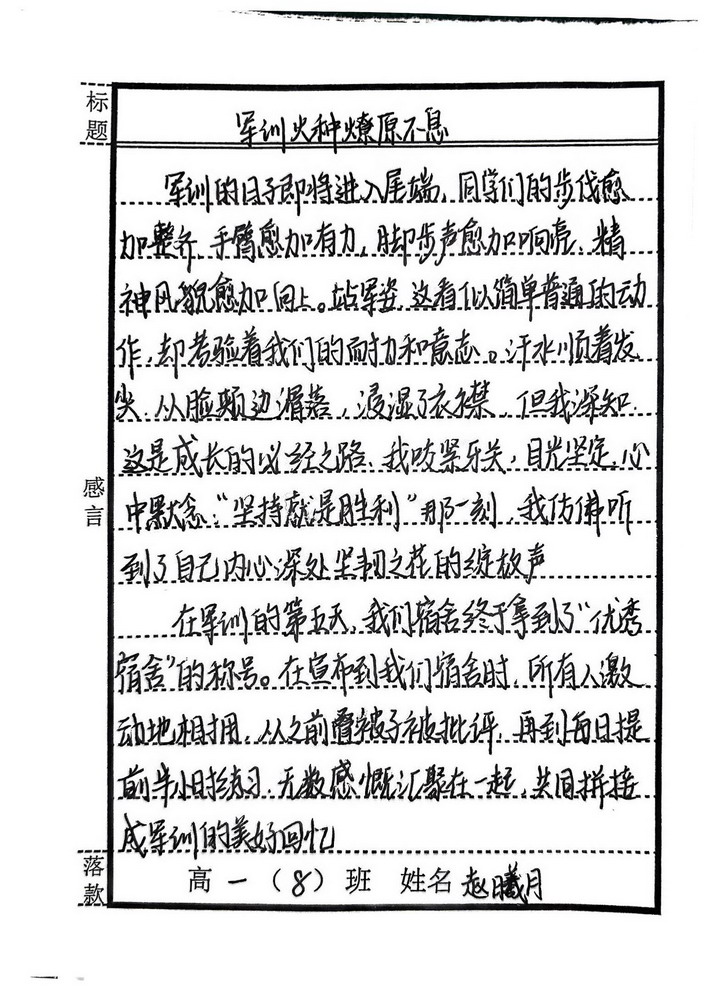 标题
军训火种燎原不息
军训的日子即将进入尾端，同学们的步伐愈
加整齐，手臂愈加有力，脚步声愈加响亮，精
神风貌愈加向上。站军姿，这看似简单普通的动
作，却考验着我们的耐力和意志。汗水顺着发
尖，从脸颊边滑落，浸湿了衣襟，但我深知，
这是成长的必经之路，我咬紧牙关，目光坚定，心
中默念：“坚持就是胜利”那一刻，我仿佛听
到了自己内心深处坚韧之花的绽放声
在军训的第五天，我们宿舍终于拿到了“优秀
宿舍”的称号。在宣布到我们宿舍时，所有人激
动地相拥，从之前叠被子被批评，再到每日提
前半小时练习，无数感慨汇聚在一起，共同拼接
成军训的美好回忆
感言
落款
高一（8）班 姓名 赵曦月